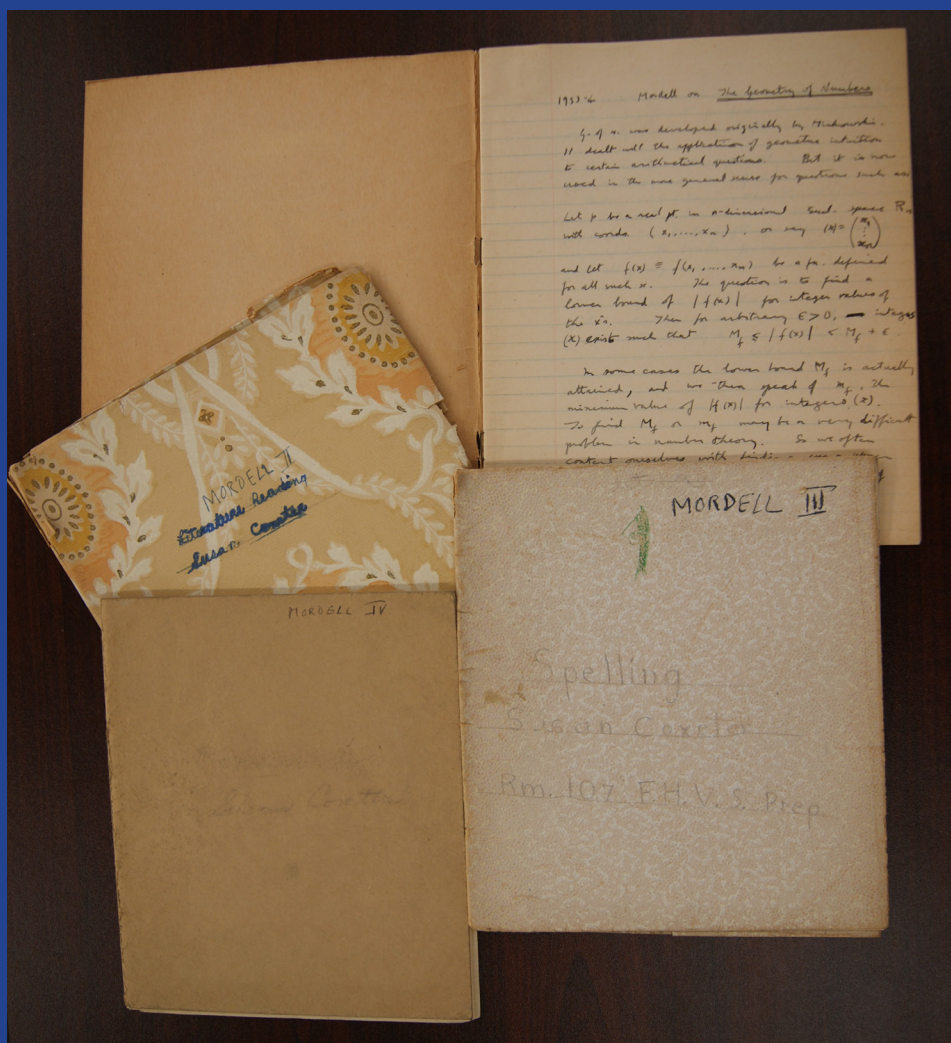 1953-4 Mordell on The Geometry of Numbers
G. of n. was developed originally by Minkowski.
It dealt with the application of geometric intuition
to certain arithmetical questions. But it is now
used in the more general sense for questions such as
Let p be a real pt. in n-dimensional Eucl. space Rn
with coords. (x1, ..., xn), or say (x) = (x1 ⋮ xn)
and let f(x) = f(x1, ..., xn) be a fn. defined
for all such x. The question is to find a
lower bound of |f(x)| for integer values of
the x's. Then for arbitrary ε>0, integers
(x) exist such that Mf ≤ |f(x)| < Mf + ε.
In some cases the lower bound Mf is actually
attained, and we then speak of mf, the
minimum value of |f(x)| for integers (x).
To find Mf or mf may be a very difficult
problem in number theory. So we often
content ourselves with
MORDELL II
Literature Reading
Susan Coxeter
MORDELL III
Spelling
Susan Coxeter
Rm. 107 F.H.V.S. Prep.
MORDELL IV
Susan Coxeter